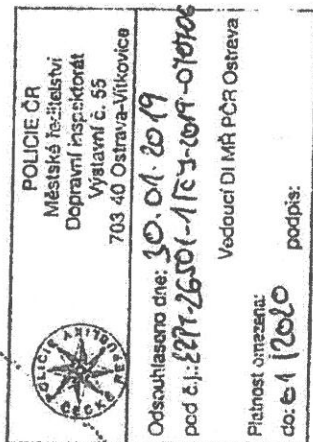 POLICIE ČR
Městské ředitelství
Dopravní inspektorát
Výstavní č. 55
703 40 Ostrava-Vítkovice
POLICIE
ČESKÉ REPUBLIKY
Odsouhlaseno dne: 30.01.2019
pod č.j.:
Vedoucí DI MŘ PČR Ostrava
Platnost omezena:
do: 01/2020 podpis: